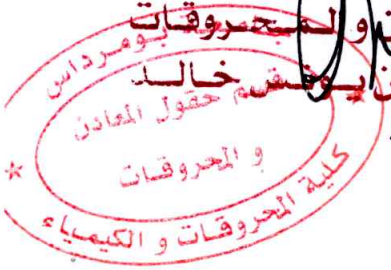 و المحروقات
خالد
بومرداس
قسم حقول المعادن
و المحروقات
كلية المحروقات و الكيمياء